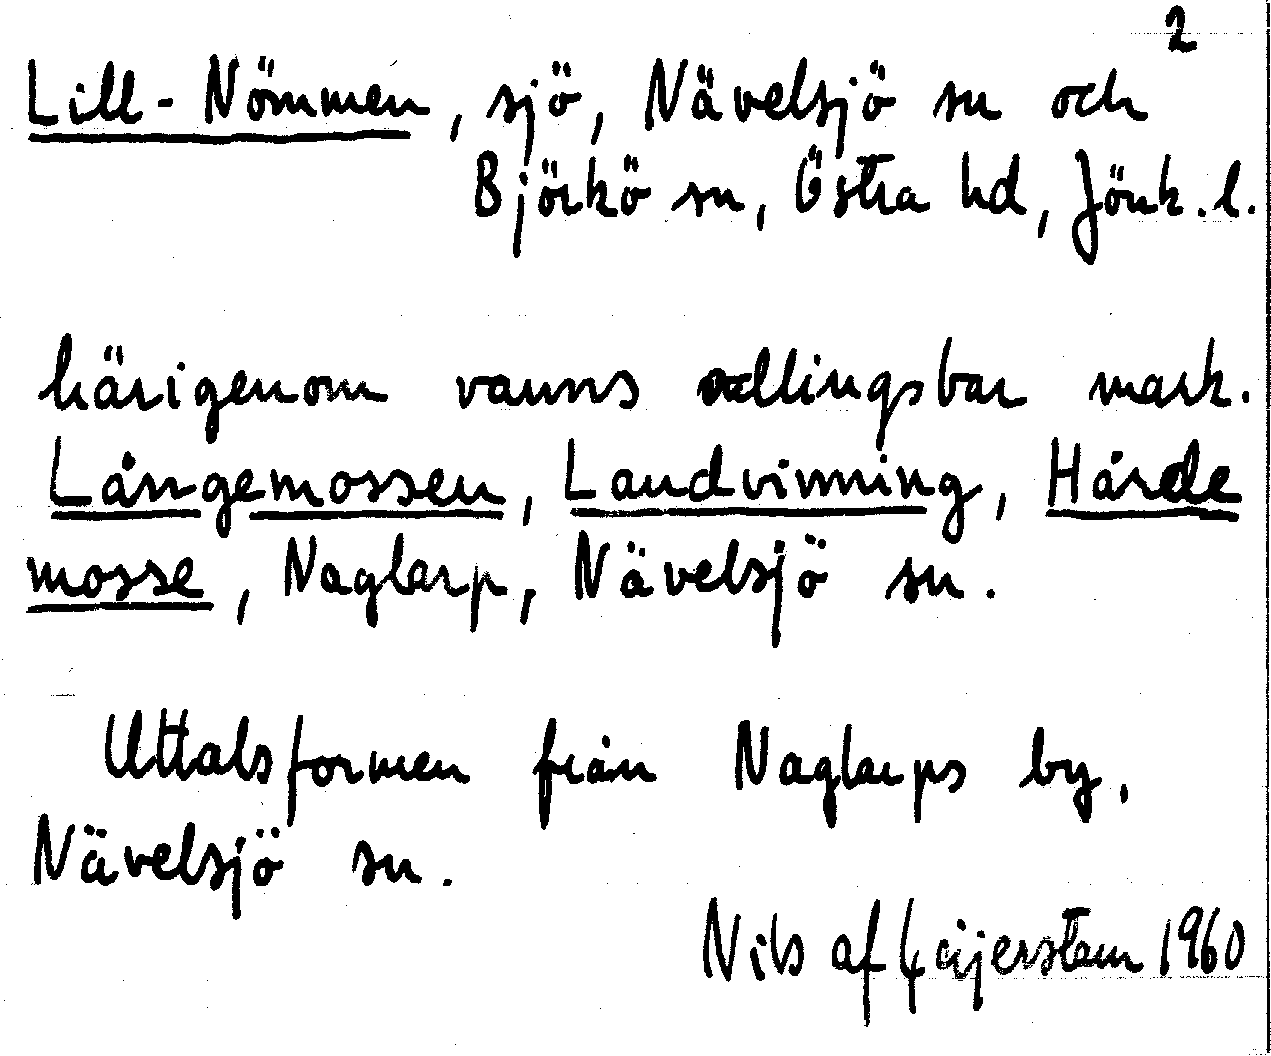 2
Lill-Nömmen, sjö, Nävelsjö sn och
Björkö sn, Östra hd, Jönk. l.
härigenom vanns odlingsbar mark.
Långemossen, Landvinning, Hårde
mosse, Naglarp, Nävelsjö sn.
Uttalsformen från Naglarps by,
Nävelsjö sn.
Nils af Geijerstam 1960